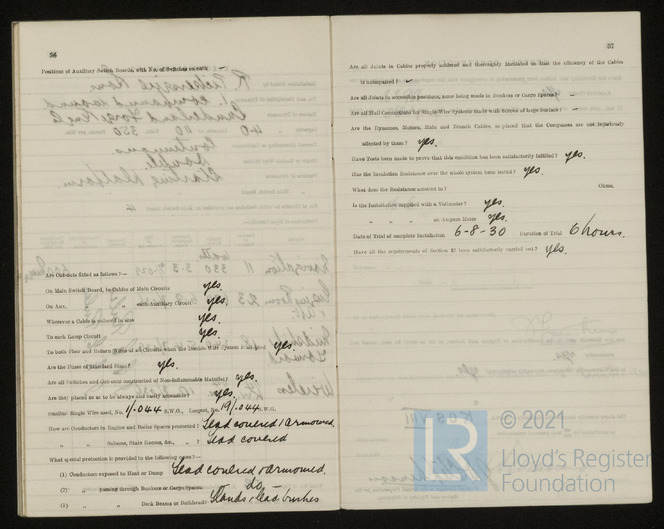 36
Positions of Auxiliary Switch Boards, with No. of Switches on each :—
Are Cut-outs fitted as follows ?—
On Main Switch Board, to Cables of Main Circuits yes.
On Aux. " " each Auxiliary Circuit yes.
Wherever a Cable is reduced in size yes.
To each Lamp Circuit yes.
To both Flow and Return Wires of all Circuits when the Double Wire System is adopted yes
Are the Fuses of Standard Sizes? yes.
Are all Switches and Cut-outs constructed of Non-inflammable Material? yes.
Are they placed so as to be always and easily accessible? yes.
Smallest Single Wire used, No. 1/.044 S.W.G., Largest, No. 19/.044 S.W.G.
How are Conductors in Engine and Boiler Spaces protected? Lead covered & armoured
" " Saloons, State Rooms, &c., " ? Lead covered
What special protection is provided in the following cases?—
(1) Conductors exposed to Heat or Damp Lead covered & armoured.
(2) " passing through Bunkers or Cargo Spaces — do —
(3) " " Deck Beams or Bulkheads Glands & lead bushes
37
Are all Joints in Cables properly soldered and thoroughly insulated so that the efficiency of the Cables
is unimpaired?
Are all Joints in accessible positions, none being made in Bunkers or Cargo Spaces? —
Are all Hull Connections for Single-Wire Systems made with Screws of large Surface? —
Are the Dynamos, Motors, Main and Branch Cables, so placed that the Compasses are not injuriously
affected by them? yes.
Have Tests been made to prove that this condition has been satisfactorily fulfilled? yes.
Has the Insulation Resistance over the whole system been tested? yes.
What does the Resistance amount to? Ohms.
Is the Installation supplied with a Voltmeter? yes.
" " " an Ampere Meter yes.
Date of Trial of complete Installation 6-8-30 Duration of Trial 6 hours.
Have all the requirements of Section 42 been satisfactorily carried out? yes.
© 2021
LR
Lloyd's Register
Foundation